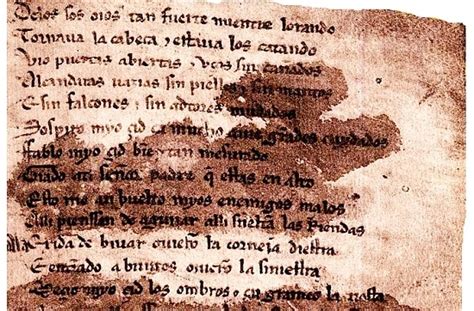 Delos sos oios tan fuerte mientre lorando
Tornaua la cabeça ⁊ estaua los catando
Vio puertas abiertas ⁊ vços sin cañados
Alcandaras uazias sin pielles ⁊ sin mantos
E sin falcones ⁊ sin adtores mudados
Sospiro myo çid ca mucho auie grãdes cuydados
Fablo myo çid biẽ ⁊ tan mesurado
Grado ati señor padre q̃ estas en alto
Esto me an buelto myos enemigos malos
Alli pienssan de aguiiar alli sueltã las Riendas
Ala Exida de biuar ouierõ la corneia diestra
E entrãdo a burgos ouierõ la siniestra
Meçio myo çid los ombros ⁊